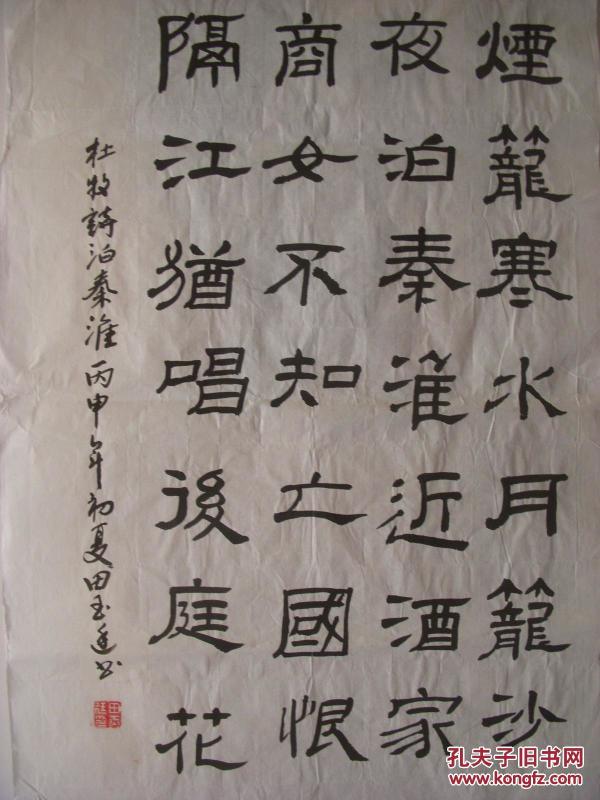 煙籠寒水月籠沙
夜泊秦淮近酒家
商女不知亡國恨
隔江猶唱後庭花
杜牧詩泊秦淮丙申年初夏田玉廷书
孔夫子旧书网
www.kongfz.com